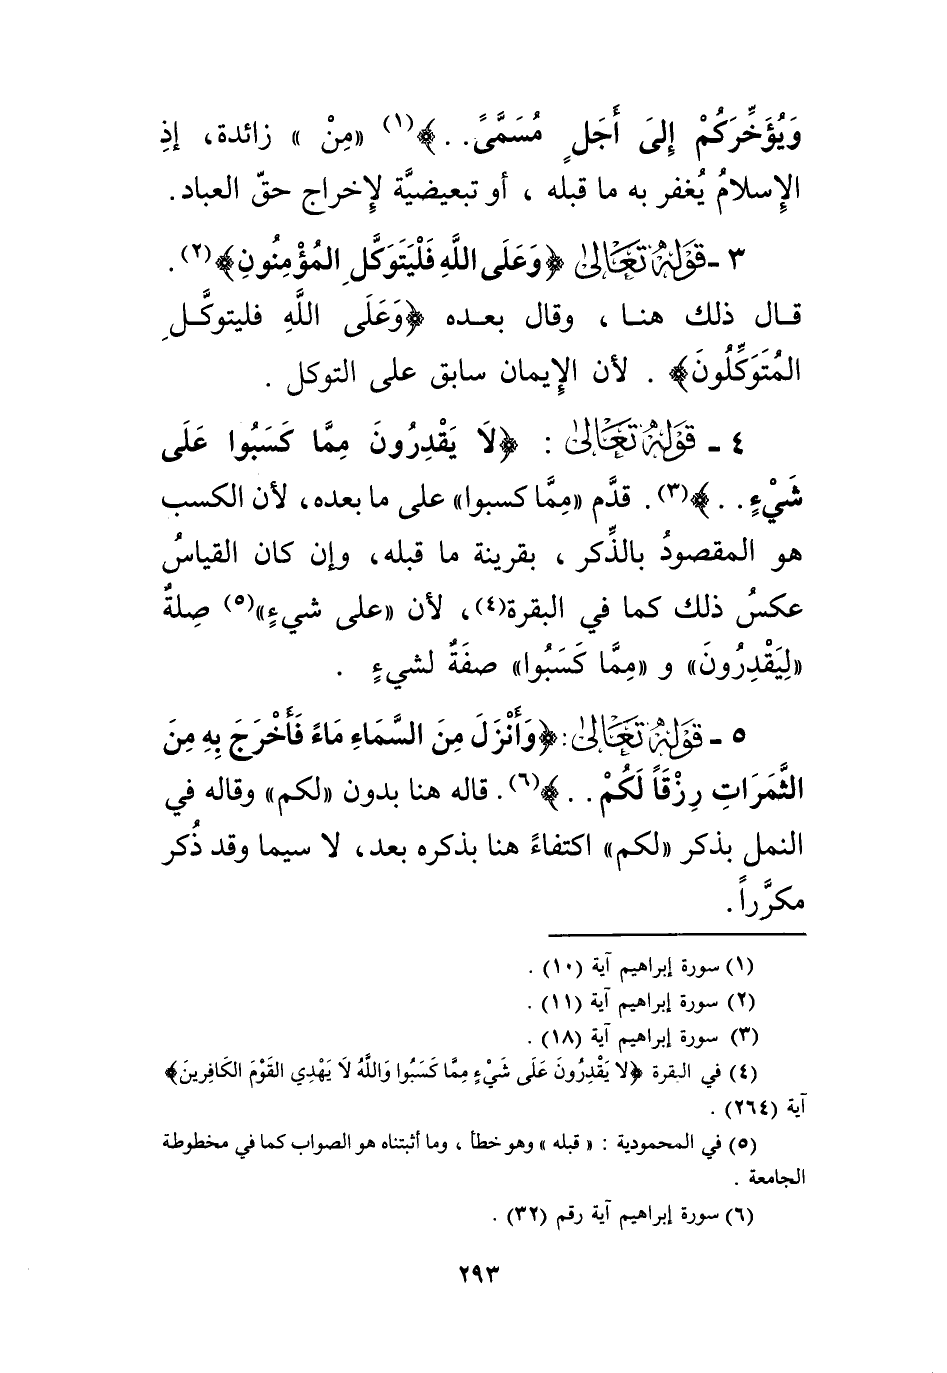 وَيُؤَخِّرَكُمْ إِلىَ أَجَلٍ مُسَمَّىً. . ﴾(١) «مِنْ » زائدة، إذِ
الإِسلامُ يُغفر به ما قبله ، أو تبعيضيَّة لإِخراج حقّ العباد.
٣ - قَوْلُهُ تَعَالىٰ ﴿وَعَلَى اللَّهِ فَلْيَتَوَكَّلِ المُؤْمِنُونِ﴾(٢).
قـال ذلك هنـا ، وقال بعـده ﴿وَعَلَى اللَّهِ فليتوكَّـلِ
المُتَوَكِّلُونَ﴾ . لأن الإِيمان سابق على التوكل .
٤ - قَوْلُهُ تَعَالىٰ : ﴿لَا يَقْدِرُونَ مِمَّا كَسَبُوا عَلَى
شَيْءٍ. . ﴾(٣). قدَّم «مِمَّا كسبوا» على ما بعده، لأن الكسب
هو المقصودُ بالذِّكر ، بقرينة ما قبله، وإن كان القياسُ
عكسُ ذلك كما في البقرة(٤)، لأن «على شيءٍ»(٥) صِلةٌ
«لِيَقْدِرُونَ» و «مِمَّا كَسَبُوا» صفَةٌ لشيءٍ .
٥ - قَوْلُهُ تَعَالىٰ: ﴿وَأَنْزَلَ مِنَ السَّمَاءِ مَاءً فَأَخْرَجَ بِهِ مِنَ
الثَّمَرَاتِ رِزْقَاً لَكُمْ. . ﴾(٦). قاله هنا بدون «لكم» وقاله في
النمل بذكر «لكم» اكتفاءً هنا بذكره بعد، لا سيما وقد ذُكر
مكرَّراً.
(١) سورة إبراهيم آية (١٠) .
(٢) سورة إبراهيم آية (١١) .
(٣) سورة إبراهيم آية (١٨) .
(٤) في البقرة ﴿لا يَقْدِرُونَ عَلَى شَيْءٍ مِمَّا كَسَبُوا وَاللَّهُ لَا يَهْدِي القَوْمَ الكَافِرِينَ﴾
آية (٢٦٤) .
(٥) في المحمودية : « قبله » وهو خطأ ، وما أثبتناه هو الصواب كما في مخطوطة
الجامعة .
(٦) سورة إبراهيم آية رقم (٣٢) .
٢٩٣